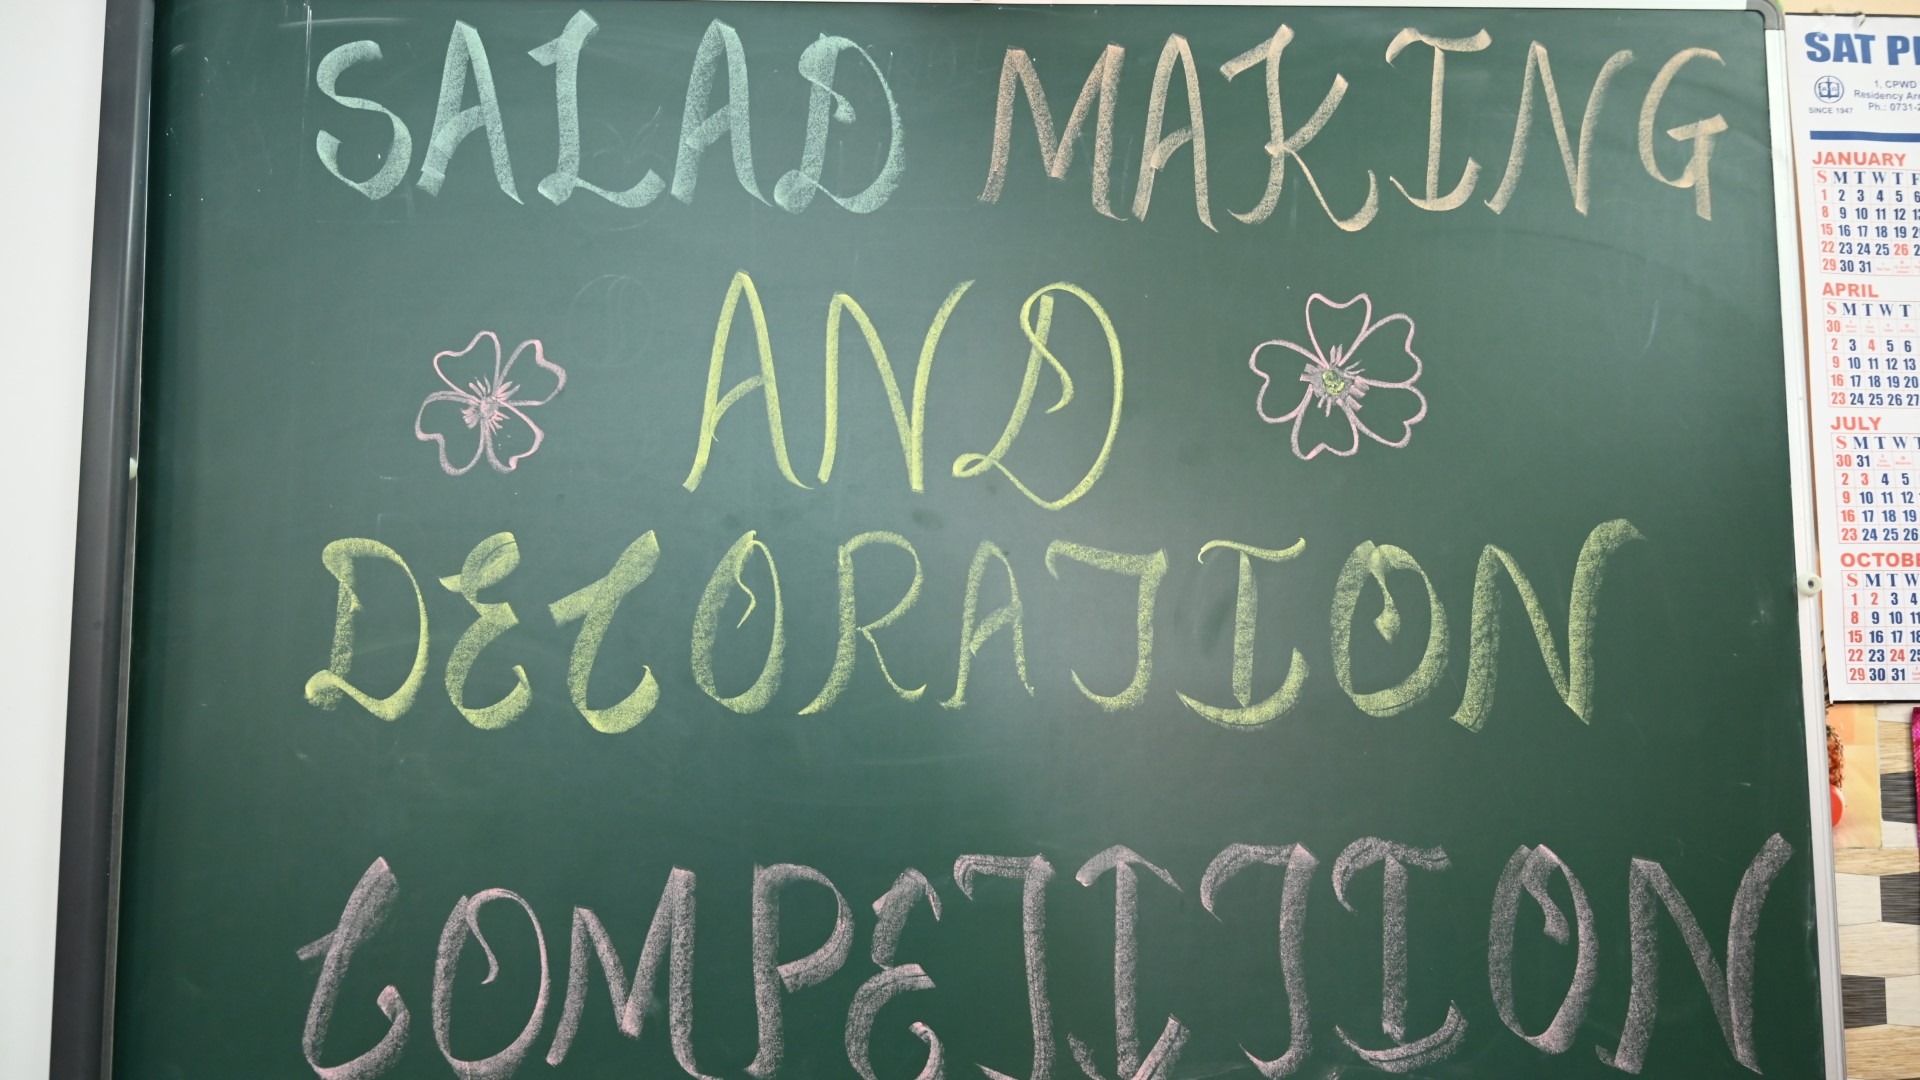 SALAD MAKING
AND
DECORATION
COMPETITION
SAT P
1, CPWD
Residency Are
Ph.: 0731-2
SINCE 1947
JANUARY
S M T W T F
1 2 3 4 5 6
8 9 10 11 12 13
15 16 17 18 19 2
22 23 24 25 26 2
29 30 31
APRIL
S M T W T
30
2 3 4 5 6
9 10 11 12 13
16 17 18 19 20
23 24 25 26 27
JULY
S M T W T
30 31
2 3 4 5
9 10 11 12
16 17 18 19
23 24 25 26
OCTOBE
S M T W
1 2 3 4
8 9 10 11
15 16 17 18
22 23 24 25
29 30 31